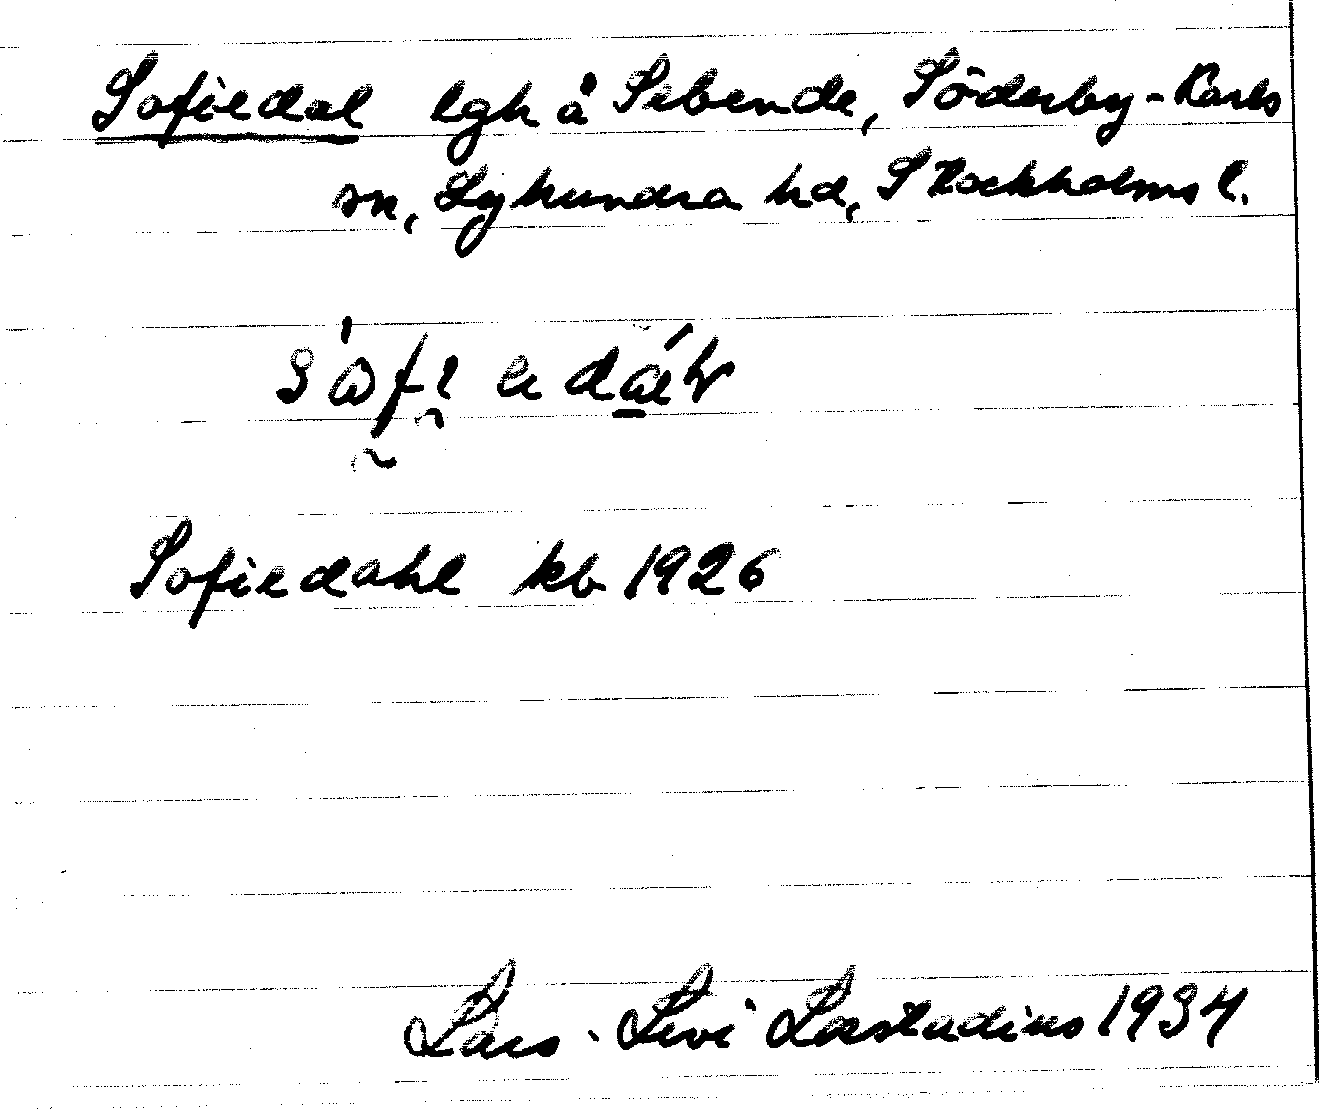 Sofiedal lgh å Sebende, Söderby-Karls
sn, Lyhundra hd, Stockholms l.
Sofiedahl kb 1926
Lars-Levi Læstadius 1934